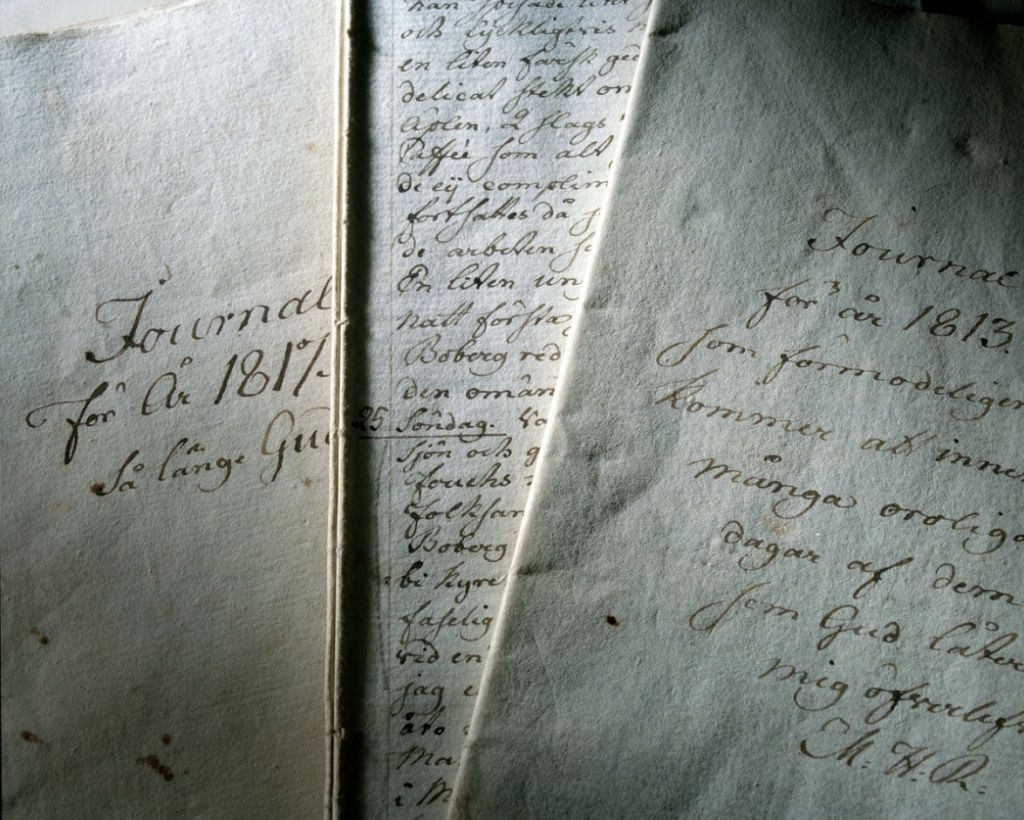 Journal
för År 1817.
så länge Gud
och lyckligtvis
en liten färsk
delicat stekt
Aplen, 2 slags
Caffée som alt
de ej complim
fortsattes då
de arbeten
En liten un
natt första
Boberg red
den omän
25 Söndag.
sjön och g
Fouchs
folksam
Boberg
bi kyrc
faselig
vid en
jag
äro
Ma
i M
Journal
för år 1813.
som förmodeligen
kommer att inne
många orolig
dagar af dem
som Gud låter
mig öfverlef
M. H. R: